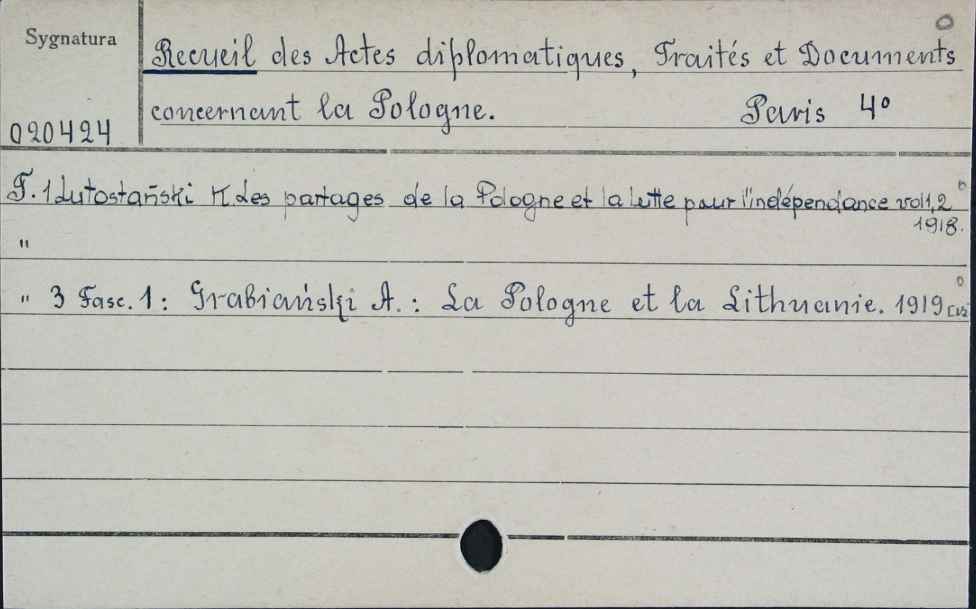 0
Sygnatura
Recueil des Actes diplomatiques, Traités et Documents
concernant la Pologne. Paris 4°
020424
T. 1 Lutostański K des partages de la Pologne et la lutte pour l'indépendance vol 1,2
1918.
"
" 3 Fasc. 1: Grabiański A.: La Pologne et la Lithuanie. 1919